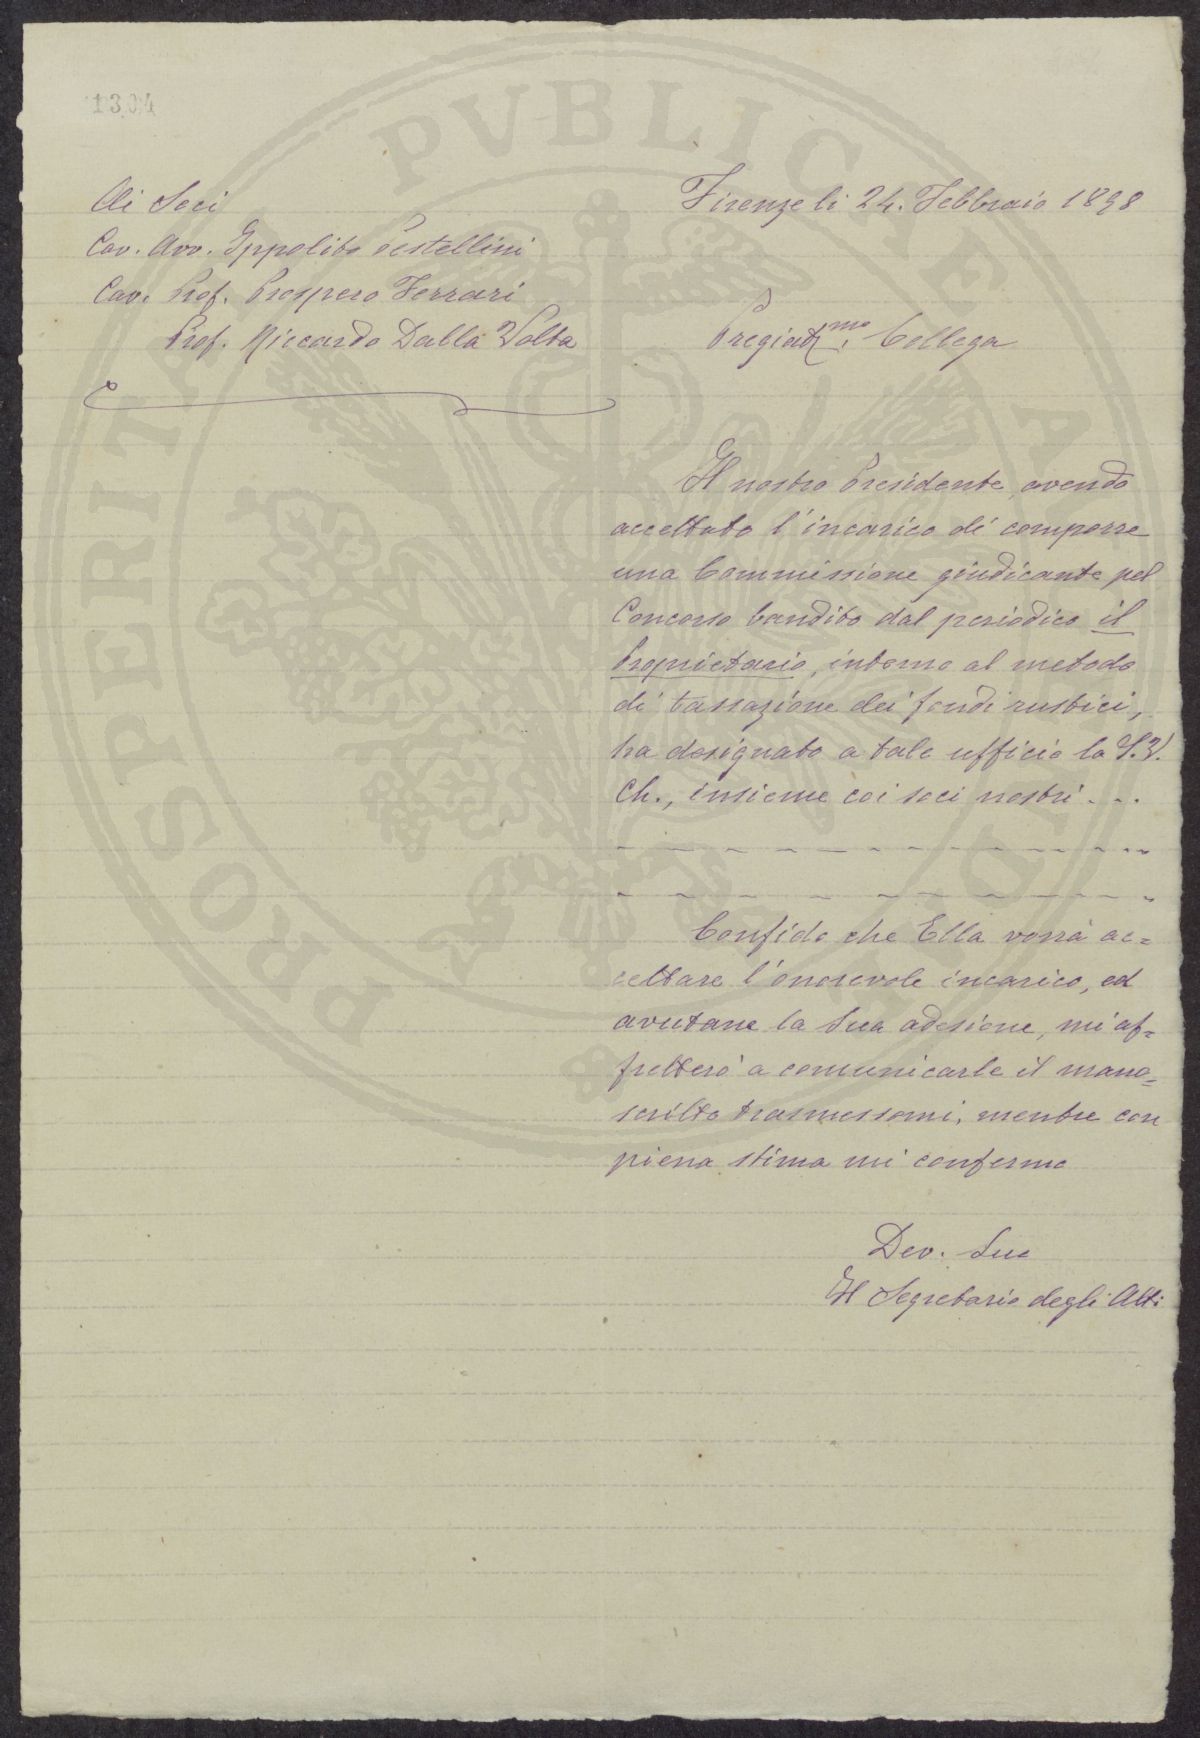 1304
Ai Soci
Cav. Avv. Ippolito Pestellini
Cav. Prof. Prospero Ferrari
Prof. Riccardo Dalla Volta
Firenze li 24. Febbraio 1898
Pregiatmo. Collega
Il nostro Presidente, avendo
accettato l'incarico di comporre
una Commissione giudicante pel
Concorso bandito dal periodico il
Proprietario, intorno al metodo
di tassazione dei fondi rustici,
ha designato a tale ufficio la S.V.
Ch., insieme coi soci nostri ...
Confido che Ella vorrà ac=
cettare l'onorevole incarico, ed
avutane la Sua adesione, mi af=
fretterò a comunicarle il mano=
scritto trasmessomi, mentre con
piena stima mi confermo
Dev. Suo
Il Segretario degli Atti
PROSPERITATI PVBLICAE AVGENDAE